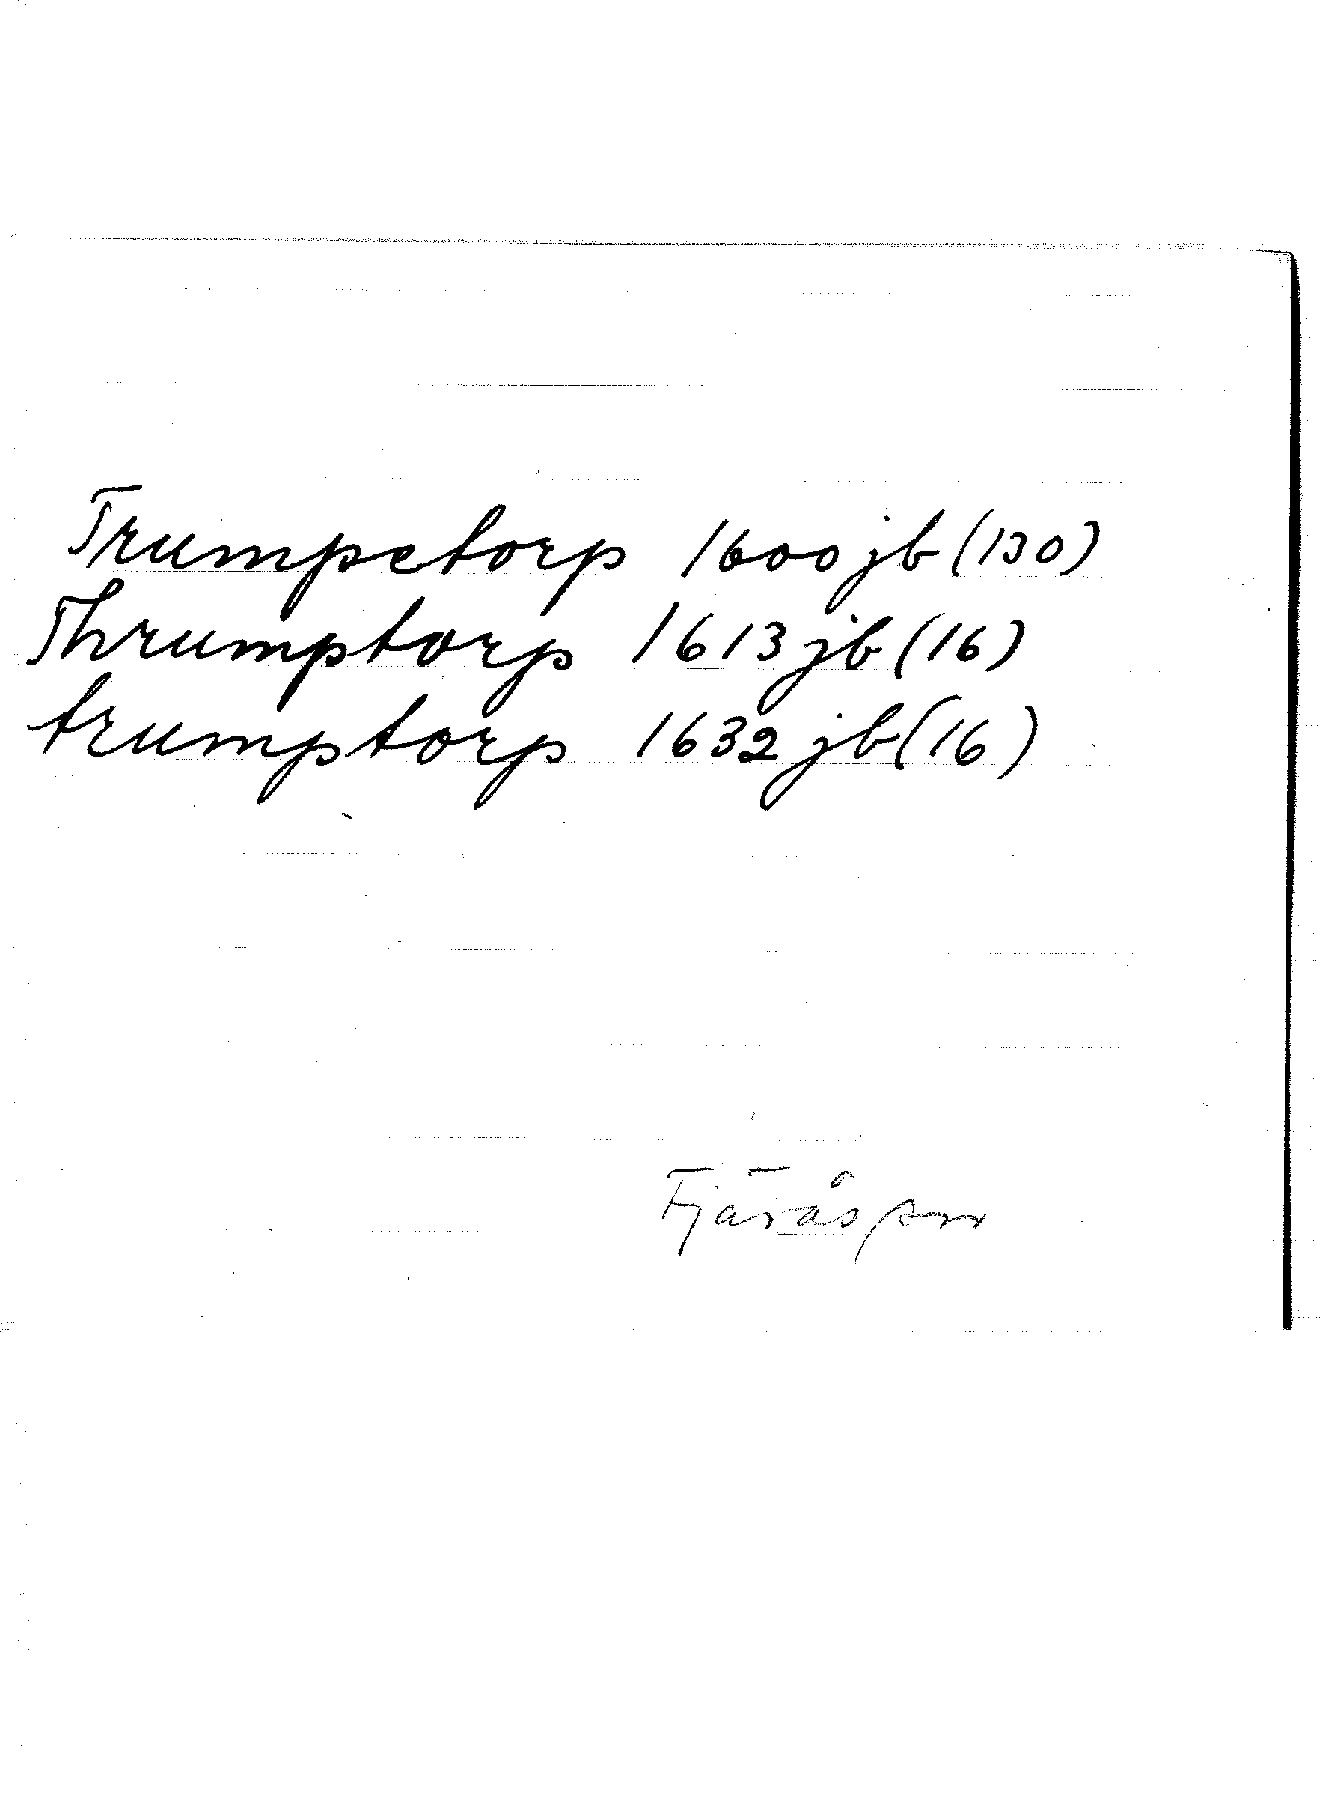 Trumpetorp 1600 jb (130)
Thrumptorp 1613 jb (16)
trumptorp 1632 jb (16)
Fjärås sn